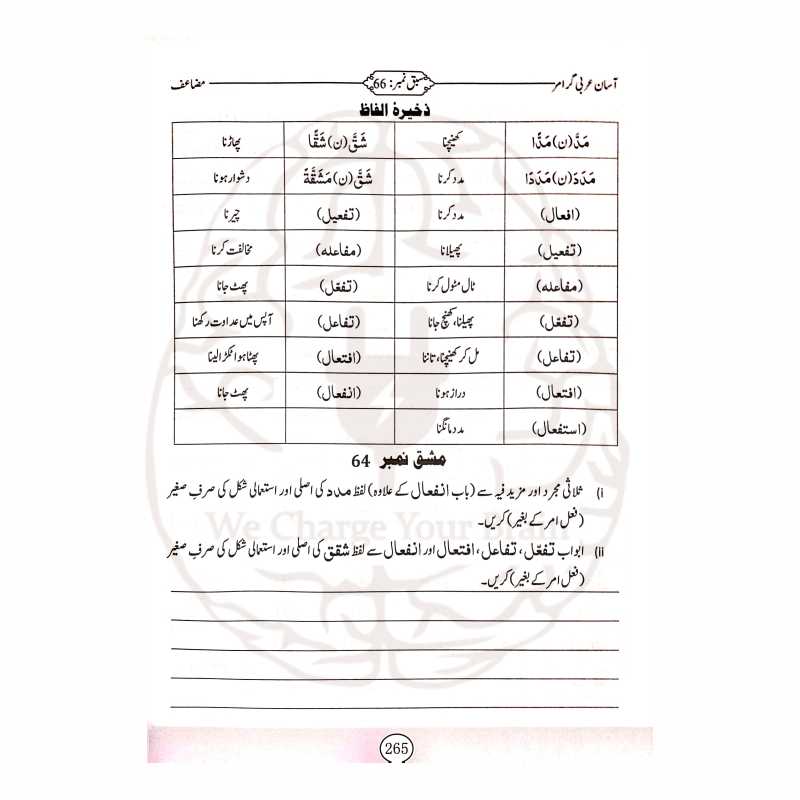 آسان عربی گرامر سبق نمبر: 66 مضاعف
ذخیرۂ الفاظ
مَدَّ (ن) مَدًّا کھینچنا شَقَّ (ن) شَقًّا پھاڑنا
مَدَدَ (ن) مَدَدًا مدد کرنا شَقَّ (ن) مَشَقَّةً دشوار ہونا
(افعال) مدد کرنا (تفعیل) چیرنا
(تفعیل) پھیلانا (مفاعله) مخالفت کرنا
(مفاعله) ٹال مٹول کرنا (تفعّل) پھٹ جانا
(تفعّل) پھیلنا، کھنچ جانا (تفاعل) آپس میں عداوت رکھنا
(تفاعل) مل کر کھینچنا، تاننا (افتعال) پھٹا ہوا ٹکڑا لینا
(افتعال) دراز ہونا (انفعال) پھٹ جانا
(استفعال) مدد مانگنا
مشق نمبر 64
(i) ثلاثی مجرد اور مزید فیہ سے (باب انفعال کے علاوہ) لفظ مدد کی اصلی اور استعمالی شکل کی صرفِ صغیر
(فعل امر کے بغیر) کریں۔
(ii) ابواب تفعّل، تفاعل، افتعال اور انفعال سے لفظ شقق کی اصلی اور استعمالی شکل کی صرفِ صغیر
(فعل امر کے بغیر) کریں۔
We Charge Your Brain
265